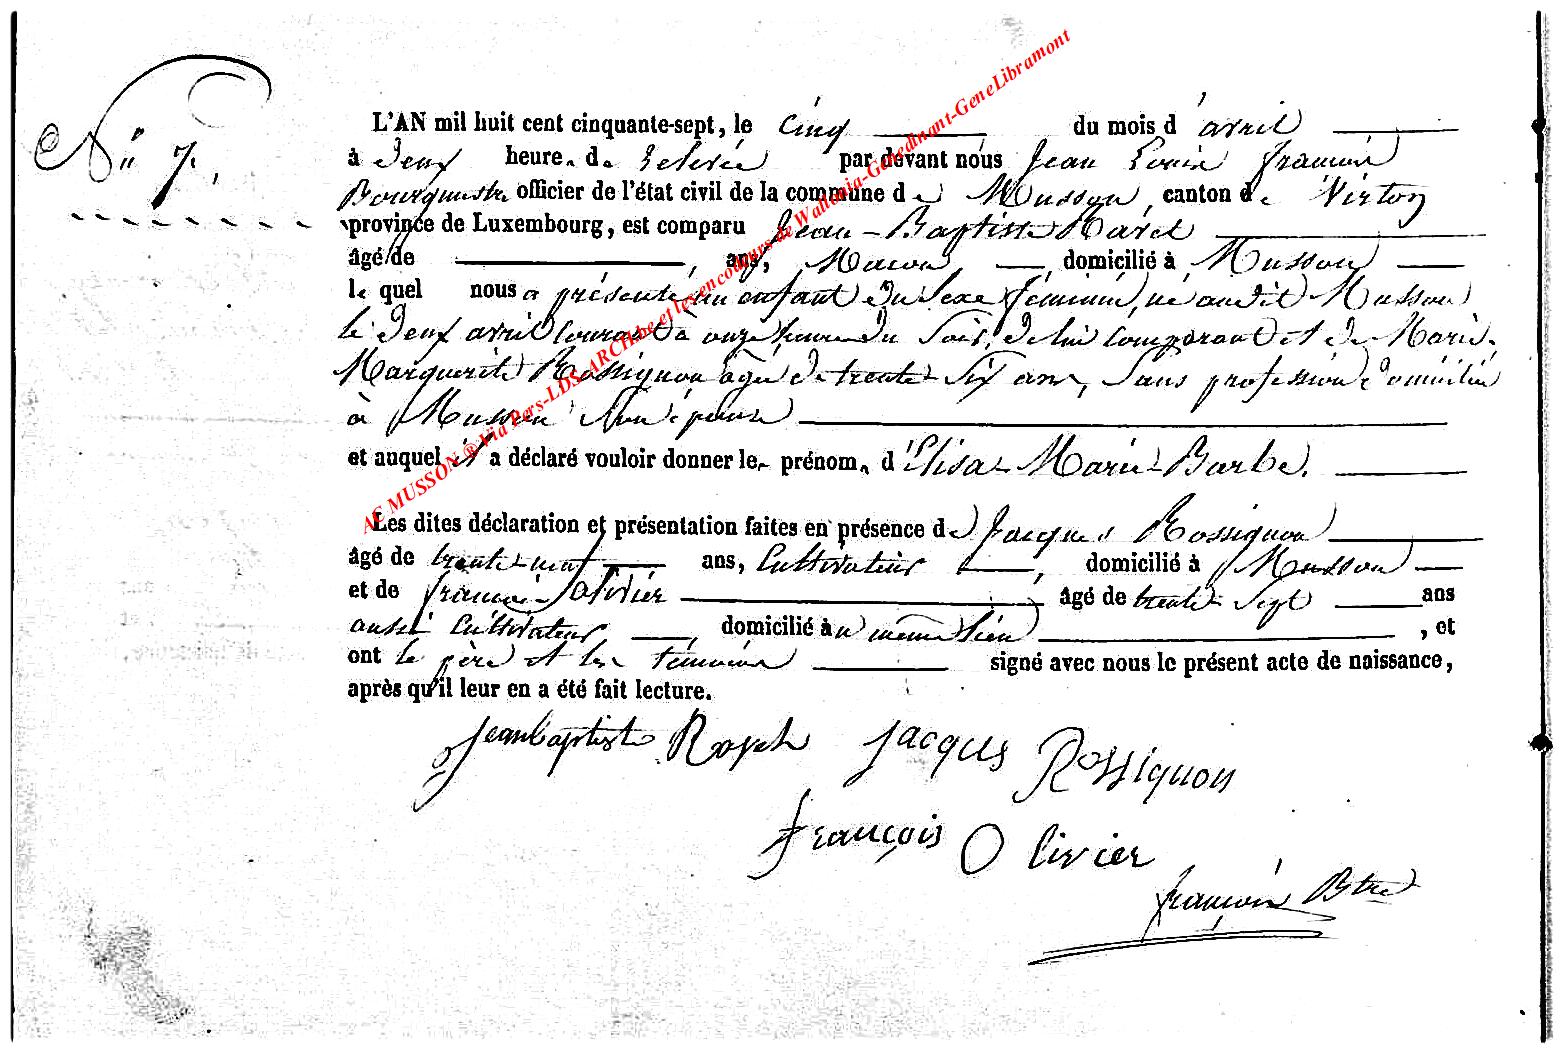 No 7,
L'AN mil huit cent cinquante-sept, le cinq du mois d'avril
à deux heure. de relevée par devant nous Jean Louis François
Bourgmestre officier de l'état civil de la commune de Musson, canton de Virton
province de Luxembourg, est comparu Jean-Baptiste
âgé de ans, Macon, domicilié à Musson
le quel nous a présenté un enfant du sexe féminin, né audit Musson
le deux avril courant à onze heure du soir, de lui comparant et de Marie
Marguerite Rossignon âgée de trente-six ans, sans profession domiciliée
à Musson son épouse
et auquel il a déclaré vouloir donner les prénoms d'Elisa-Marie-Barbe.
Les dites déclaration et présentation faites en présence de Jacques Rossignon
âgé de trente-neuf ans, Cultivateur, domicilié à Musson
et de François Olivier âgé de trente-sept ans
aussi Cultivateur, domicilié au même lieu, et
ont le père et les témoins signé avec nous le présent acte de naissance,
après qu'il leur en a été fait lecture.
Jean baptiste Jacques Rossignon
François Olivier
François Btre
AC MUSSON ® Via Pers-LDS-ARCH.be et les encodeurs de Wallonia-Genedinant-GeneLibramont